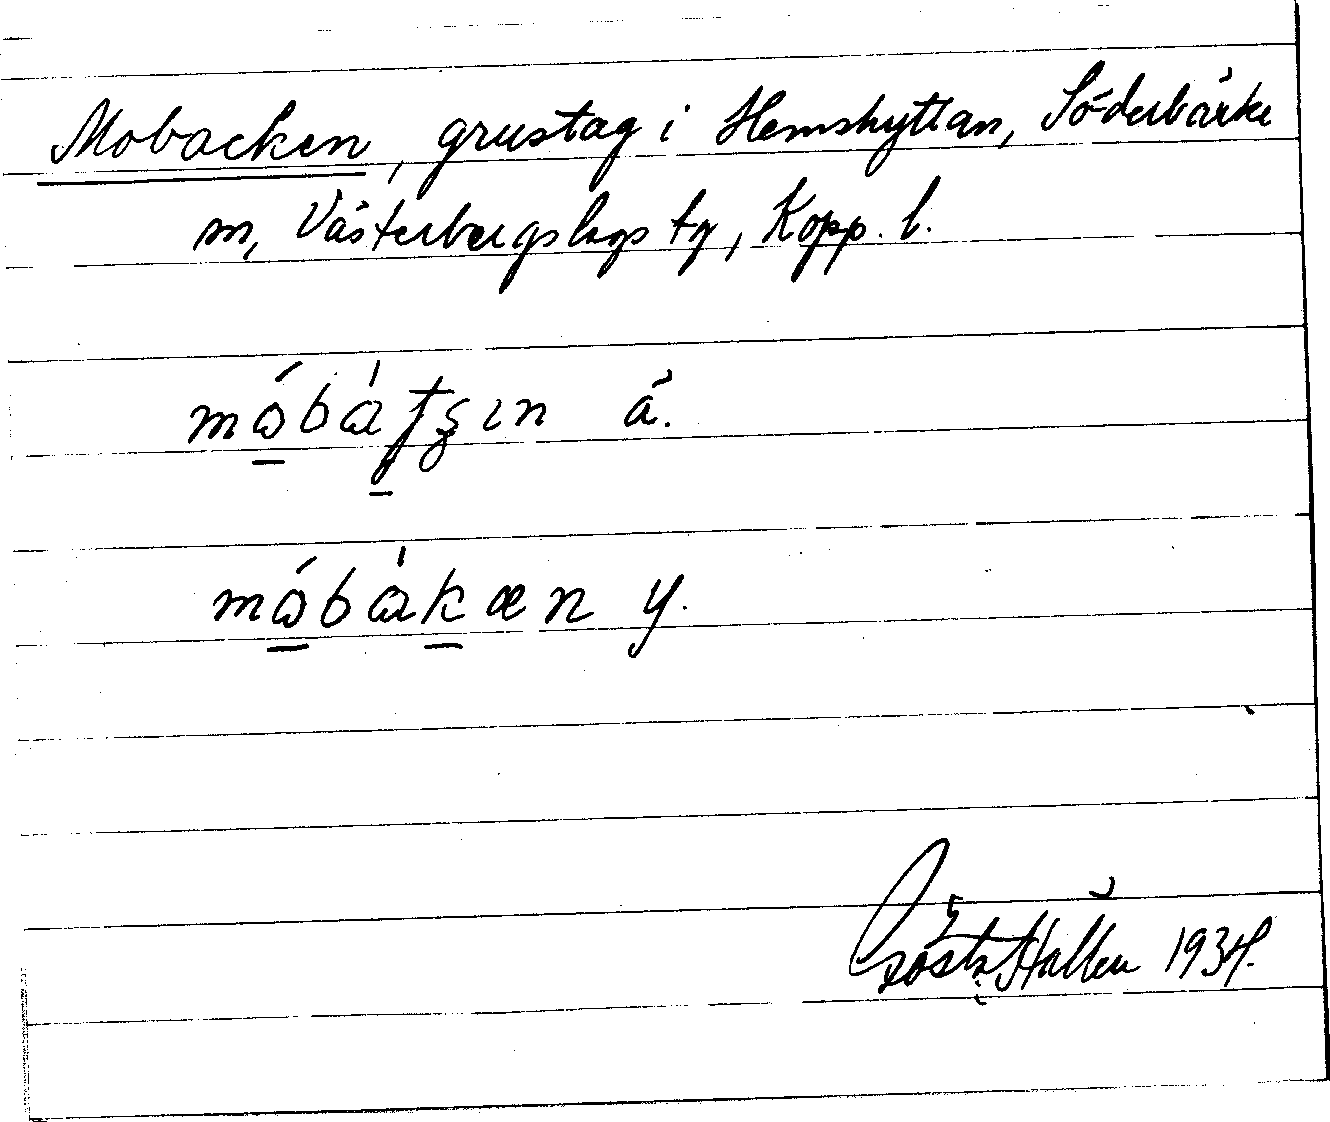 Mobacken, grustag i Hemshyttan, Söderbärke
sn, Västerbergslags tg, Kopp. l.
ä.
y.
Gösta Hallén 1934.